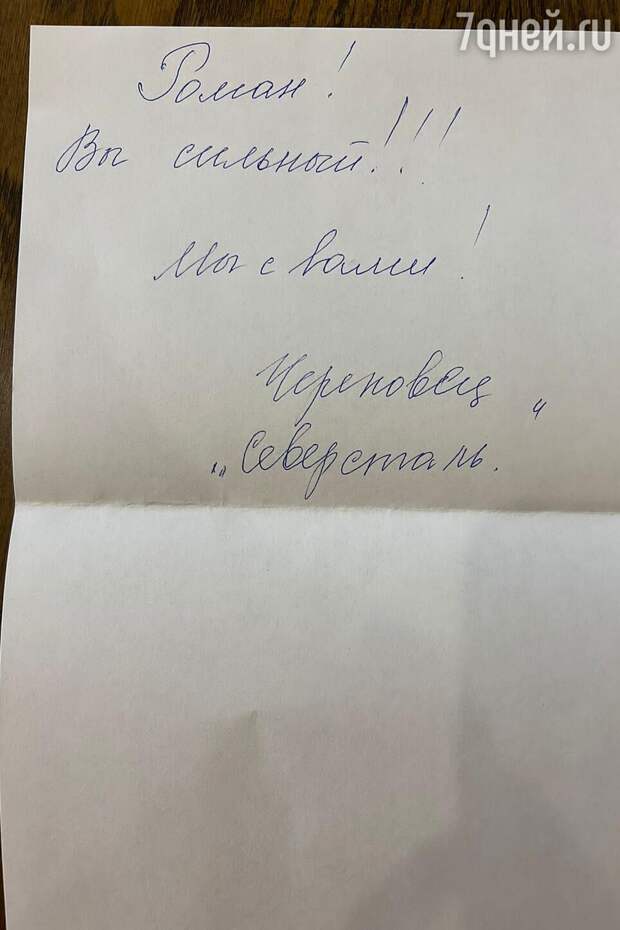 7дней.ru
Роман!
Вы сильный!!!
Мы с вами!
Череповец
"Северсталь."